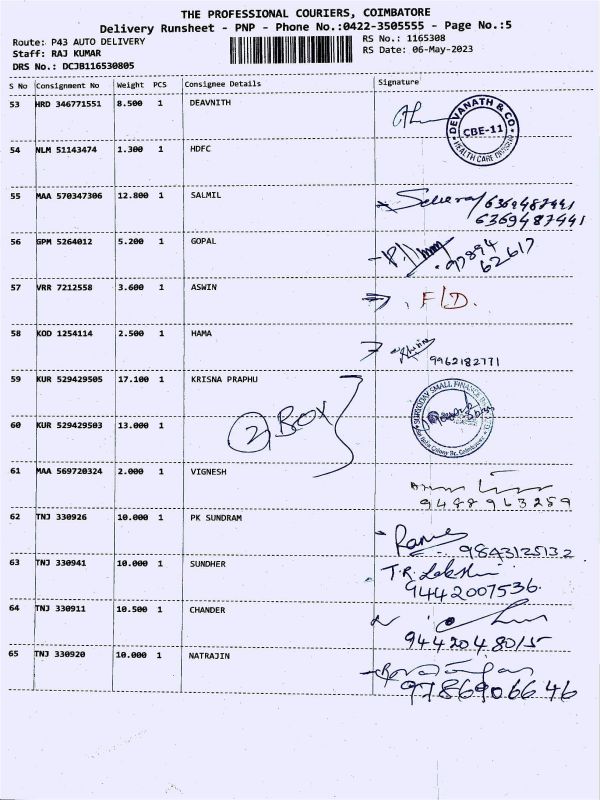 THE PROFESSIONAL COURIERS, COIMBATORE
Delivery Runsheet - PNP - Phone No.:0422-3505555 - Page No.:5
Route: P43 AUTO DELIVERY
Staff: RAJ KUMAR
DRS No.: DCJB116530805
RS No.: 1165308
RS Date: 06-May-2023
S No Consignment No Weight PCS Consignee Details Signature
53 HRD 346771551 8.500 1 DEAVNITH
DEVANATH & CO
CBE-11
HEALTH CARE DIVISION
54 NLM 51143474 1.300 1 HDFC
55 MAA 570347306 12.800 1 SALMIL
6369487441
6369487441
56 GPM 5264012 5.200 1 GOPAL
97894
62617
57 VRR 7212558 3.600 1 ASWIN
F/D.
58 KOD 1254114 2.500 1 HAMA
9962182771
59 KUR 529429505 17.100 1 KRISNA PRAPHU
SMALL FINANCE
60 KUR 529429503 13.000 1
2 BOX
61 MAA 569720324 2.000 1 VIGNESH
9488963259
62 TNJ 330926 10.000 1 PK SUNDRAM
9843125132
63 TNJ 330941 10.000 1 SUNDHER
T.R. Lekshmi
9442007536.
64 TNJ 330911 10.500 1 CHANDER
9442048015
65 TNJ 330920 10.000 1 NATRAJIN
9786906646